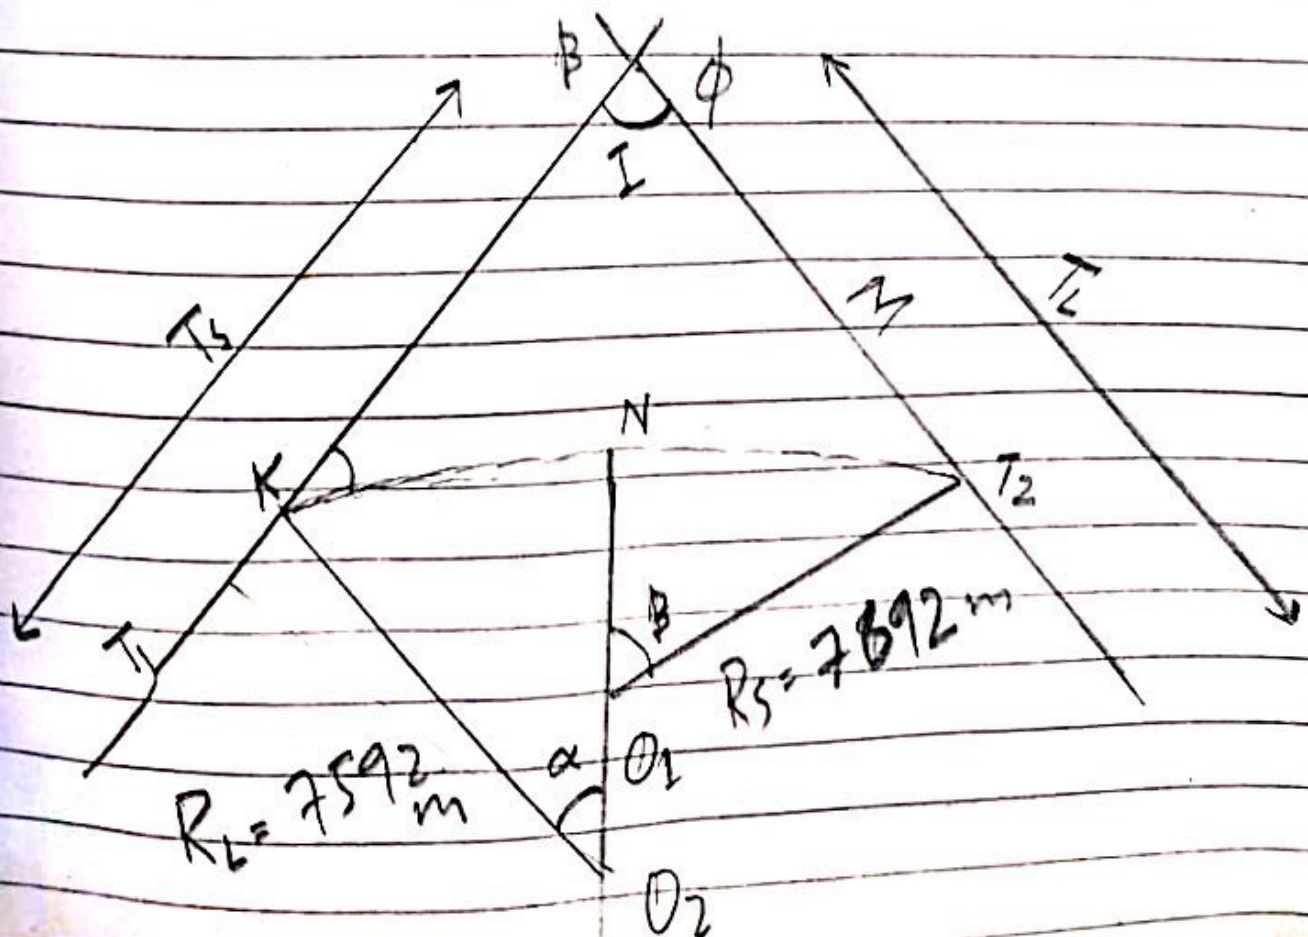 B
ϕ
I
Ts
TL
M
N
K
T2
T1
B
Rs = 7892 m
RL = 7592 m
α
O1
O2